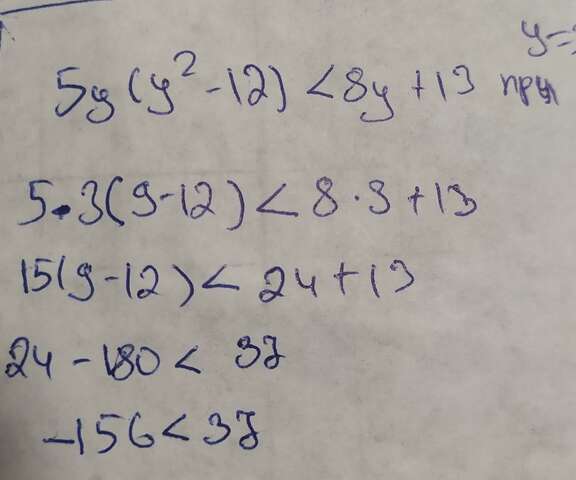 y=3
5y(y²-12)<8y+13 при
5·3(9-12)<8·3+13
15(9-12)<24+13
24-180<37
-156<37